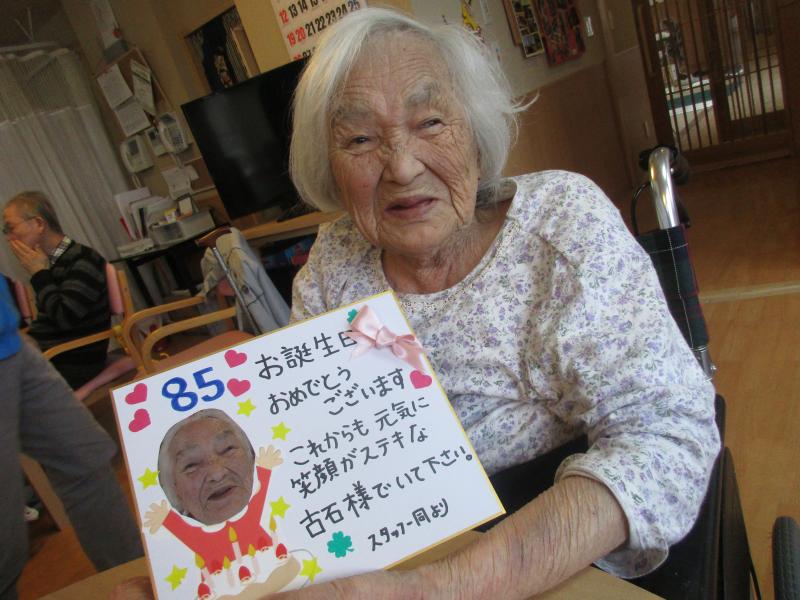 12 13 14 15
19 20 21 22
26
85
お誕生日
おめでとう
ございます
これからも 元気に
笑顔がステキな
古石様でいて下さい。
スタッフ一同より